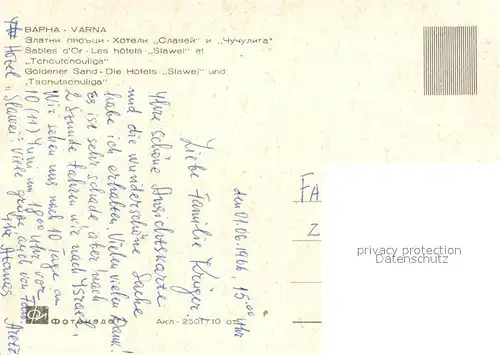 ВАРНА - VARNA
Златни пясъци - Хотели „Славей" и „Чучулига"
Sables d'Or - Les hôtels „Slawei" et
„Tchoutchouliga"
Goldener Sand - Die Hotels „Slawej" und
„Tschutschuliga"
den 01.06.1986, 15.00 Uhr
Liebe Familie Krüger!
Ihre schöne Ansichtskarte
und die wunderschöne Sache
habe ich erhalten. Vielen vielen Dank!
Es ist sehr schade, aber nach
2 Stunde fahren wir nach
Wir sehen uns nach 10 Tage am
10 (11) Juni um 18.00 Uhr, vor
Hotel „Slawei". Viele grüße, auch von
Ihre Atanas
FA
Z
privacy protection
VDMedien24.de
Фотокада
Акл-2501710 от